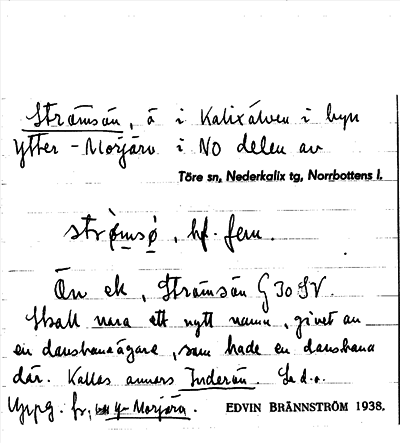 Strömsön, ö i Kalixälven i byn
Ytter-Morjärv i NO delen av
Töre sn, Nederkalix tg, Norrbottens l.
strømsø, bf. fem.
Ön ek, Strömsön G 30 SV.
Skall vara ett nytt namn, givet av
en dansbaneägare, som hade en dansbana
där. Kallas annars Inderön. Se d.o.
Uppg. fr. Y-Morjärv. EDVIN BRÄNNSTRÖM 1938.